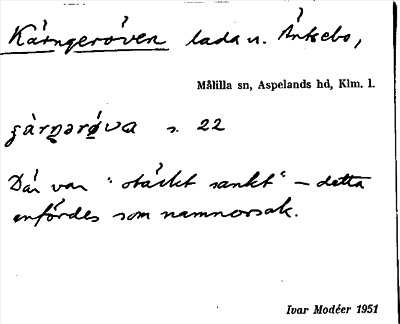 Kärngeröven lada u. Äntsebo,
Målilla sn, Aspelands hd, Klm. l.
s. 22
Där var "stäckt sankt" – detta
anfördes som namnorsak.
Ivar Modéer 1951